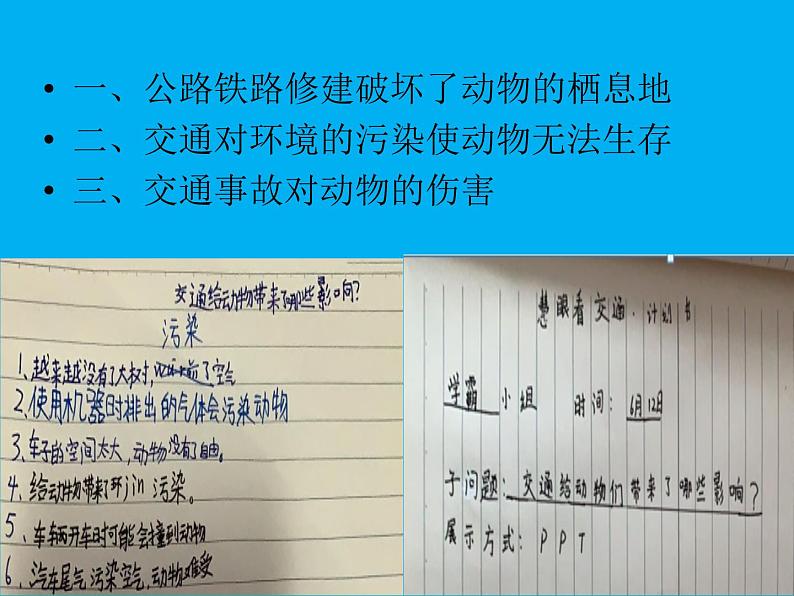 • 一、公路铁路修建破坏了动物的栖息地
• 二、交通对环境的污染使动物无法生存
• 三、交通事故对动物的伤害
交通给动物带来了哪些影响？
污染
1、越来越没有了大树, 了空气
2、使用机器时排出的气体会污染动物
3、车子的空间太大，动物没有了自由。
4、给动物带来了环jin污染。
5、车辆开车时可能会撞到动物
6、汽车尾气污染空气，动物难受
慧眼看交通·计划书
学霸 小组 时间：6月12日
子问题：交通给动物们带来了哪些影响？
展示方式：PPT